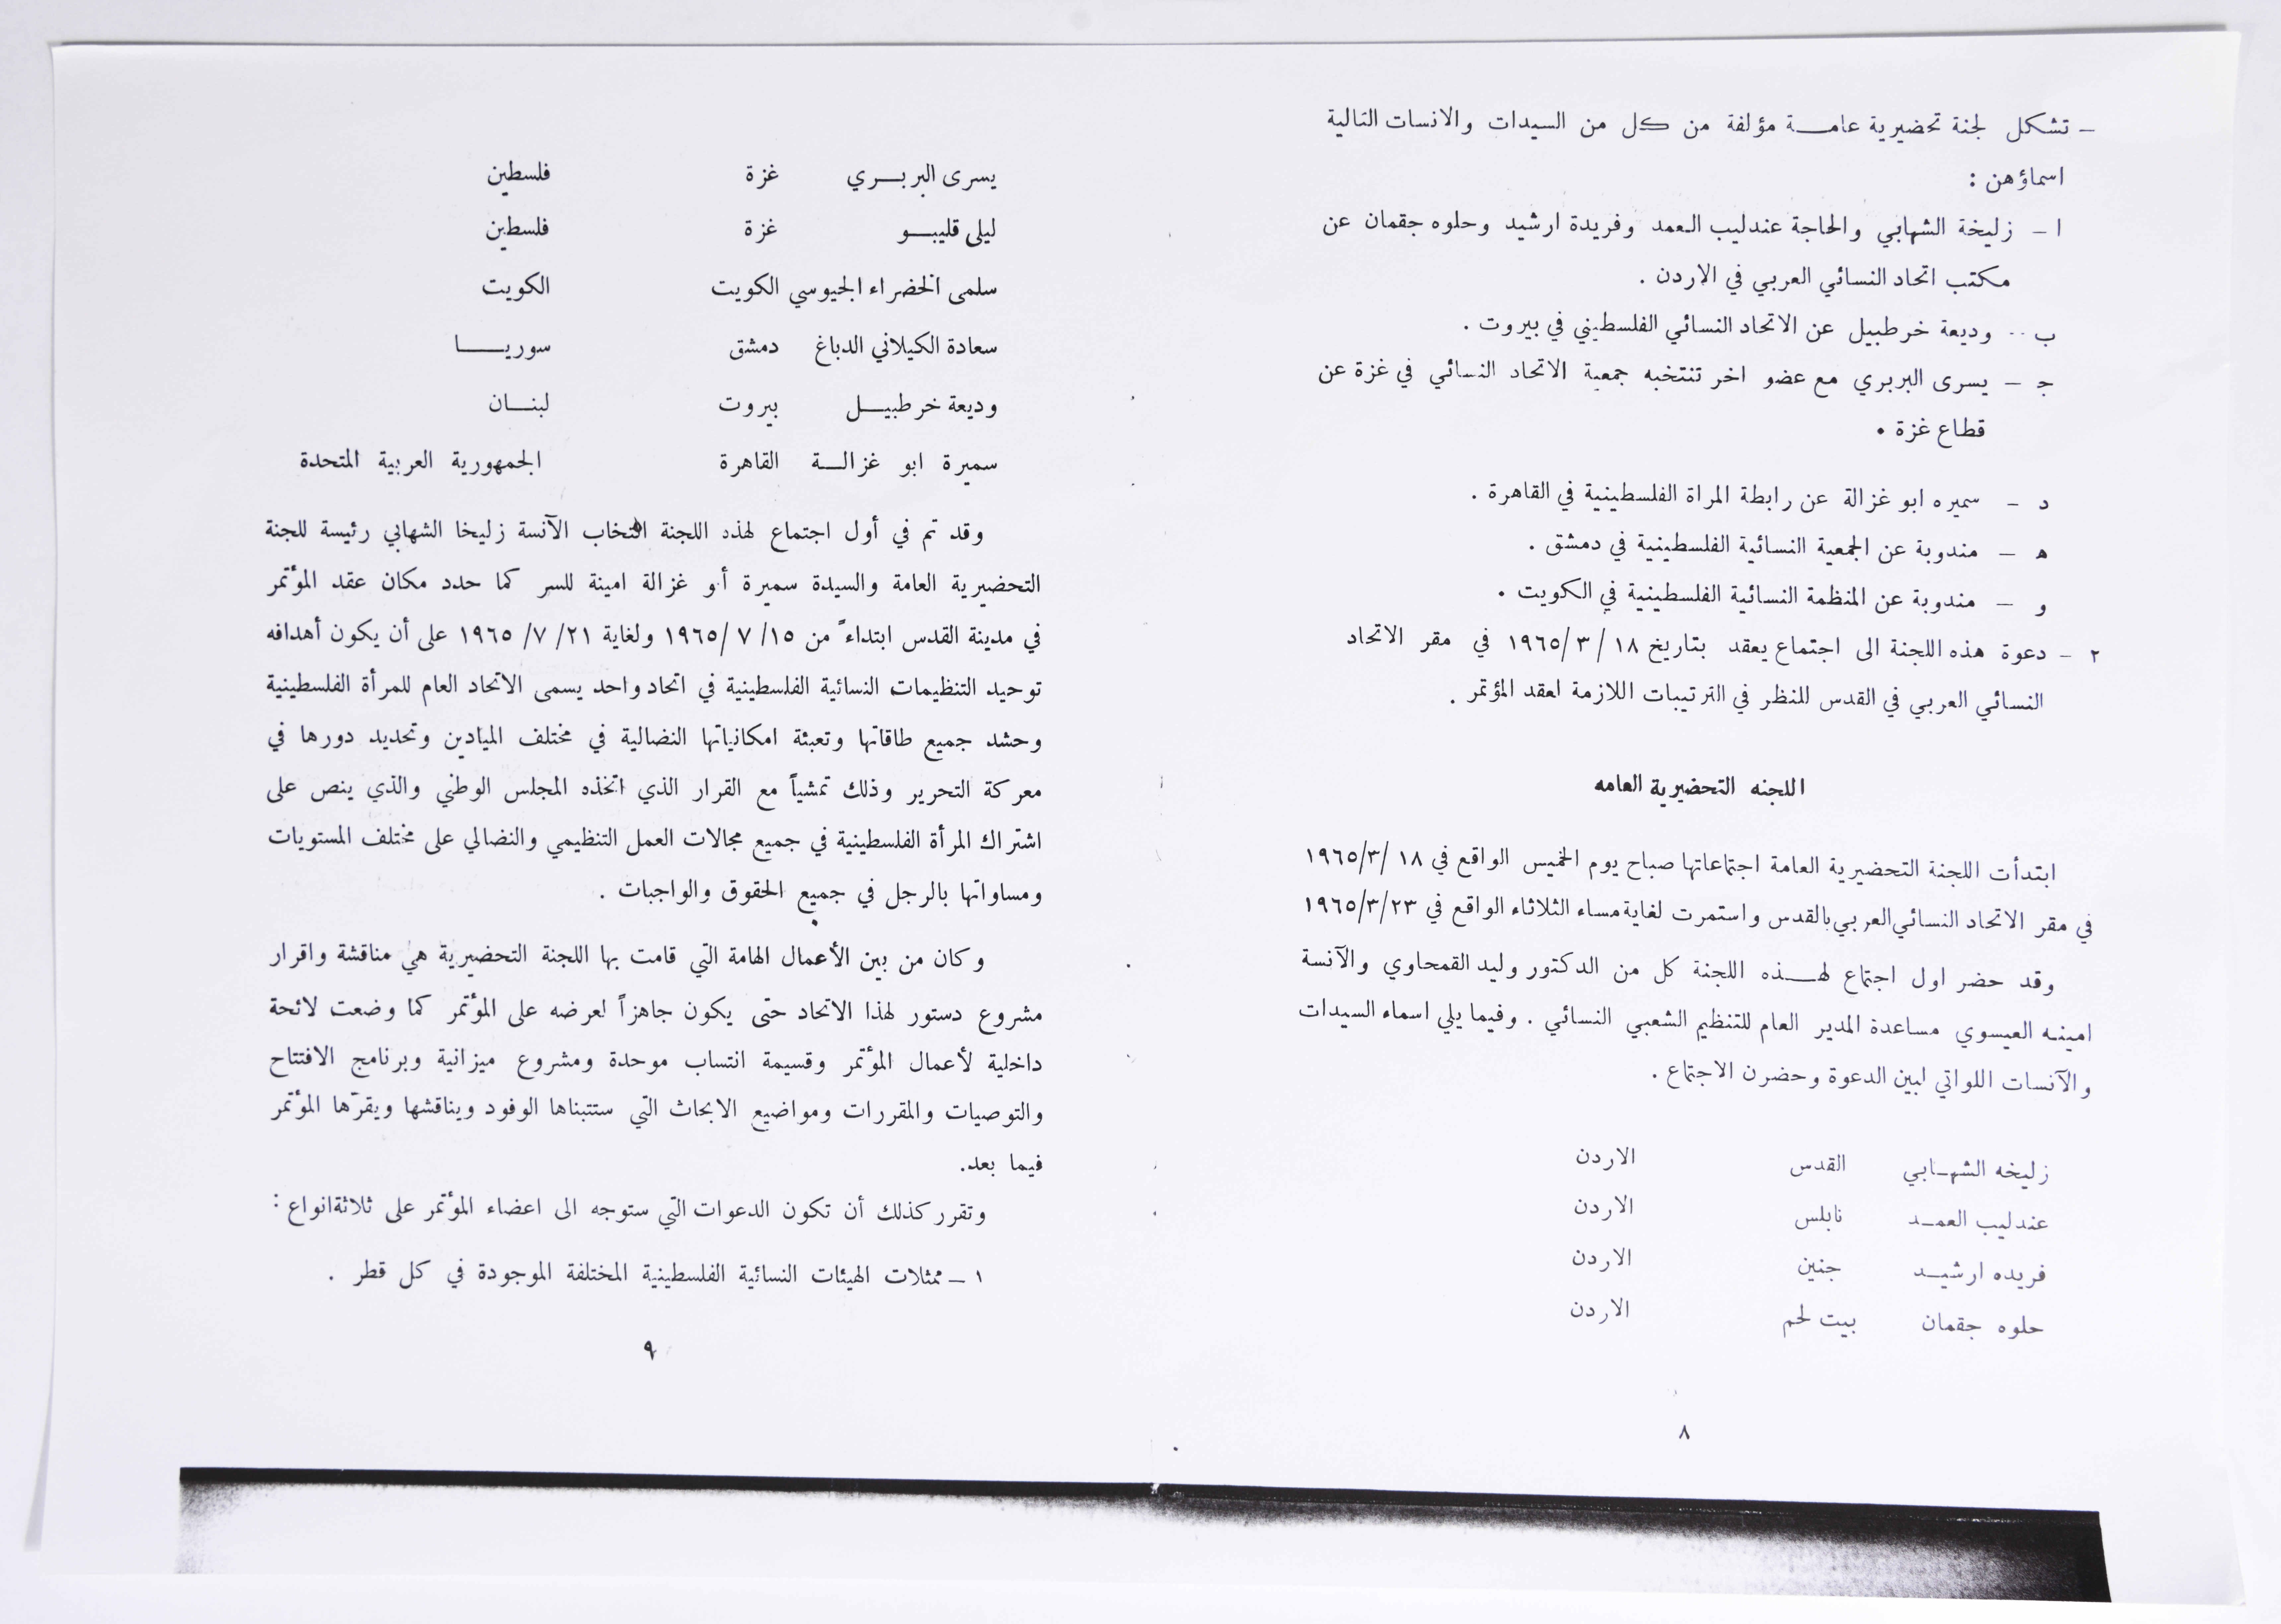 – تشكل لجنة تحضيرية عامـــة مؤلفة من كل من السيدات والانسات التالية
اسماؤهن :
ا – زليخة الشهابي والحاجة عندليب العمد وفريدة ارشيد وحلوه جقمان عن
مكتب اتحاد النسائي العربي في الاردن .
ب – وديعة خرطبيل عن الاتحاد النسائي الفلسطيني في بيروت .
ج – يسرى البربري مع عضو اخر تنتخبه جمعية الاتحاد النسائي في غزة عن
قطاع غزة .
د – سميره ابو غزالة عن رابطة المراة الفلسطينية في القاهرة .
ه – مندوبة عن الجمعية النسائية الفلسطينية في دمشق .
و – مندوبة عن المنظمة النسائية الفلسطينية في الكويت .
٢ – دعوة هذه اللجنة الى اجتماع يعقد بتاريخ ١٨ / ٣ /١٩٦٥ في مقر الاتحاد
النسائي العربي في القدس للنظر في الترتيبات اللازمة لعقد المؤتمر .
اللجنه التحضيرية العامه
ابتدأت اللجنة التحضيرية العامة اجتماعاتها صباح يوم الخميس الواقع في ١٨ /١٩٦٥/٣
في مقر الاتحاد النسائي العربي بالقدس واستمرت لغاية مساء الثلاثاء الواقع في ١٩٦٥/٣/٢٣
وقد حضر اول اجتماع لهـــذه اللجنة كل من الدكتور وليد القمحاوي والآنسة
امينه العيسوي مساعدة المدير العام للتنظيم الشعبي النسائي . وفيما يلي اسماء السيدات
والآنسات اللواتي لبين الدعوة وحضرن الاجتماع .
زليخه الشهـابي القدس الاردن
عندليب العمـد نابلس الاردن
فريده ارشيـد جنين الاردن
حلوه جقمان بيت لحم الاردن
٨
يسرى البربـــري غزة فلسطين
ليلى قليبـــو غزة فلسطين
سلمى الخضراء الجيوسي الكويت الكويت
سعادة الكيلاني الدباغ دمشق سوريـــــا
وديعة خرطبيـــل بيروت لبنـــان
سميرة ابو غزالـــة القاهرة الجمهورية العربية المتحدة
وقد تم في أول اجتماع لهذه اللجنة انتخاب الآنسة زليخا الشهابي رئيسة للجنة
التحضيرية العامة والسيدة سميرة أبو غزالة امينة للسر كما حدد مكان عقد المؤتمر
في مدينة القدس ابتداءً من ١٥/ ٧ /١٩٦٥ ولغاية ٢١/ ٧/ ١٩٦٥ على أن يكون أهدافه
توحيد التنظيمات النسائية الفلسطينية في اتحاد واحد يسمى الاتحاد العام للمرأة الفلسطينية
وحشد جميع طاقاتها وتعبئة امكانياتها النضالية في مختلف الميادين وتحديد دورها في
معركة التحرير وذلك تمشياً مع القرار الذي اتخذه المجلس الوطني والذي ينص على
اشتراك المرأة الفلسطينية في جميع مجالات العمل التنظيمي والنضالي على مختلف المستويات
ومساواتها بالرجل في جميع الحقوق والواجبات .
وكان من بين الأعمال الهامة التي قامت بها اللجنة التحضيرية هي مناقشة واقرار
مشروع دستور لهذا الاتحاد حتى يكون جاهزاً لعرضه على المؤتمر كما وضعت لائحة
داخلية لأعمال المؤتمر وقسيمة انتساب موحدة ومشروع ميزانية وبرنامج الافتتاح
والتوصيات والمقررات ومواضيع الابحاث التي ستتبناها الوفود ويناقشها ويقرّها المؤتمر
فيما بعد.
وتقرر كذلك أن تكون الدعوات التي ستوجه الى اعضاء المؤتمر على ثلاثة انواع :
١ – ممثلات الهيئات النسائية الفلسطينية المختلفة الموجودة في كل قطر .
٩